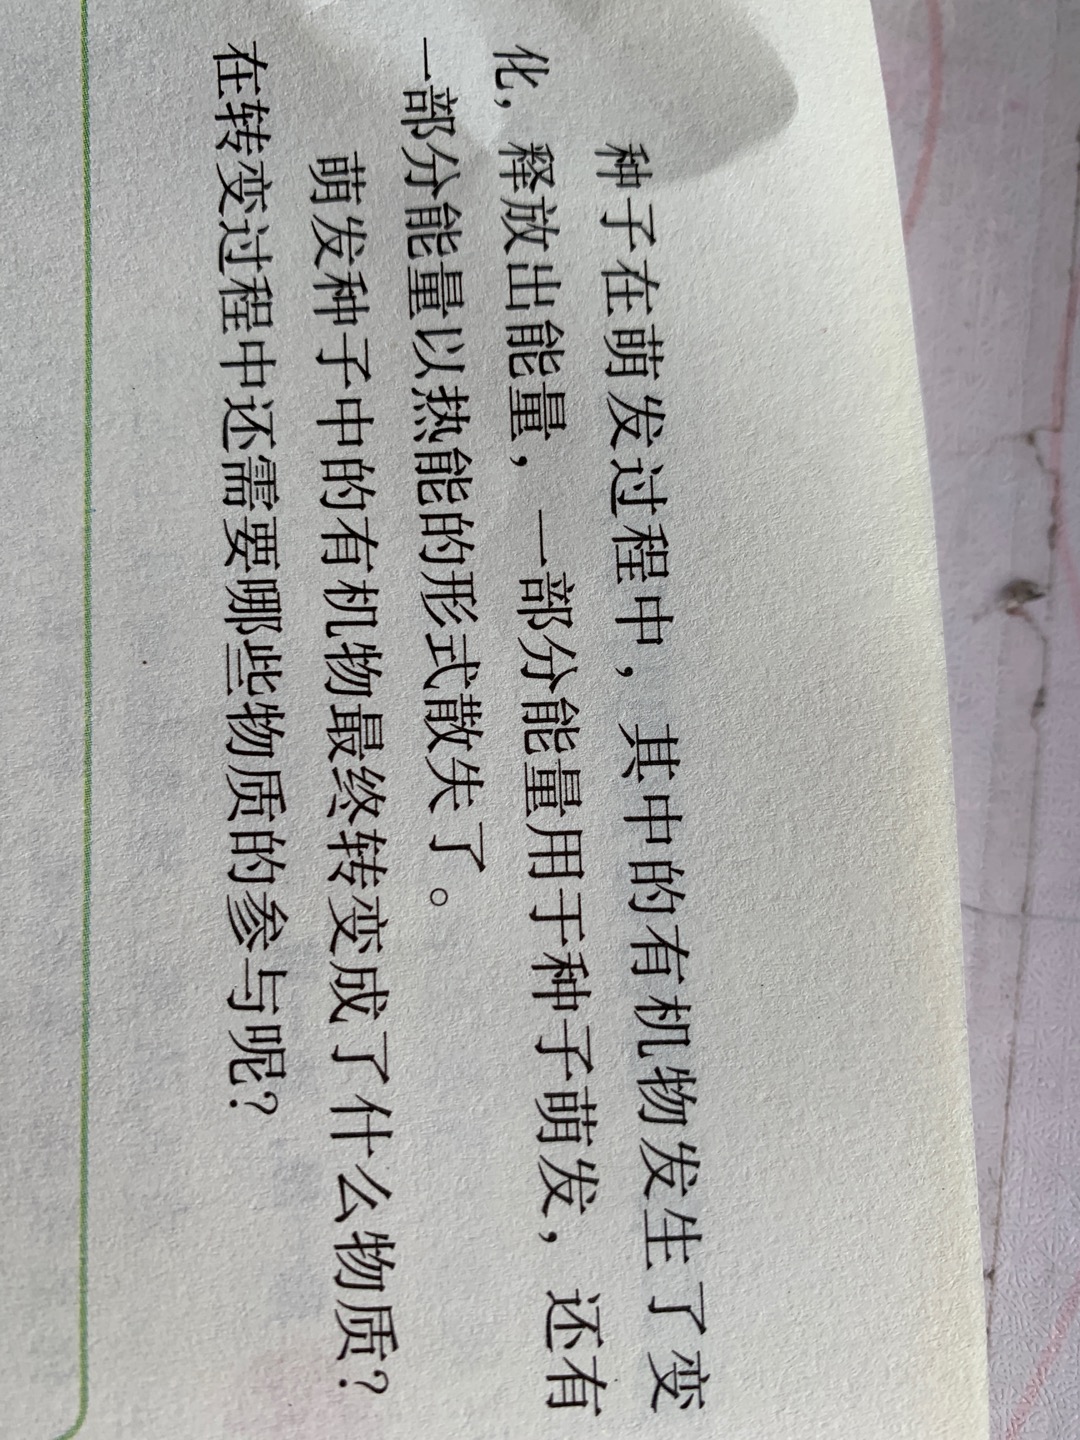 种子在萌发过程中，其中的有机物发生了变
化，释放出能量，一部分能量用于种子萌发，还有
一部分能量以热能的形式散失了。
萌发种子中的有机物最终转变成了什么物质？
在转变过程中还需要哪些物质的参与呢？